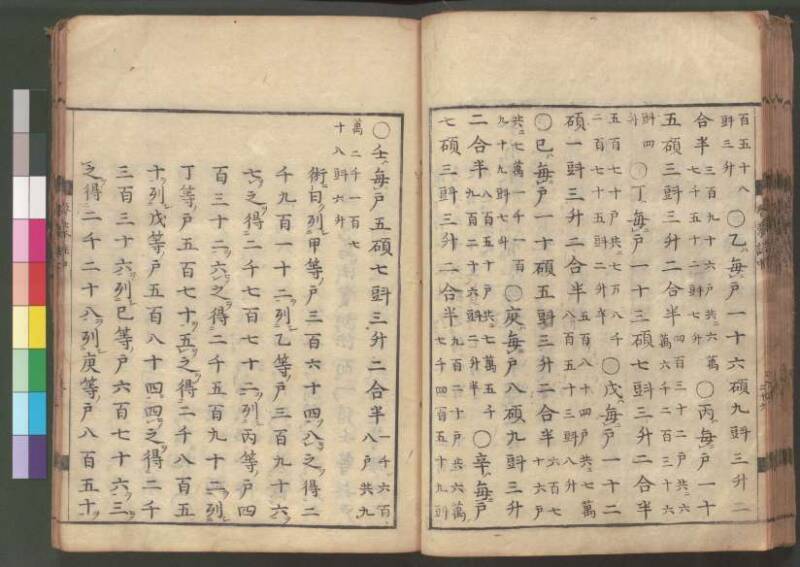 百五十八
㪷三升
○乙每戶一十六碩九㪷三升二
合半
三百九十六戶共六萬
七千五十二㪷七升
○丙每戶一十
五碩三㪷三升二合半
四百三十二戶共六
萬六千二百三十六
㪷四
升
○丁每戶一十三碩七㪷三升二合半
五百七十戶共七萬八千
二百七十五㪷二升半
○戊每戶一十二
碩一㪷三升二合半
五百八十四戶共七萬
八百五十三㪷八升
○巳每戶一十碩五㪷三升二合半
六百七
十六戶
共七萬一千一百
九十九㪷七升
○庚每戶八碩九㪷三升
二合半
八百五十戶共七萬五千
九百二十六㪷二升半
○辛每戶
七碩三㪷三升二合半
九百二十戶共六萬
七千四百五十九㪷
○壬每戶五碩七㪷三升二合半
一千六百
八戶共九
萬二千一百七
十八㪷六升
術曰列甲等戶三百六十四八之得二
千九百一十二列乙等戶三百九十六
七之得二千七百七十二列丙等戶四
百三十二六之得二千五百九十二列
丁等戶五百七十五之得二千八百五
十列戊等戶五百八十四四之得二千
三百三十六列巳等戶六百七十六三
之得二千二十八列庚等戶八百五十